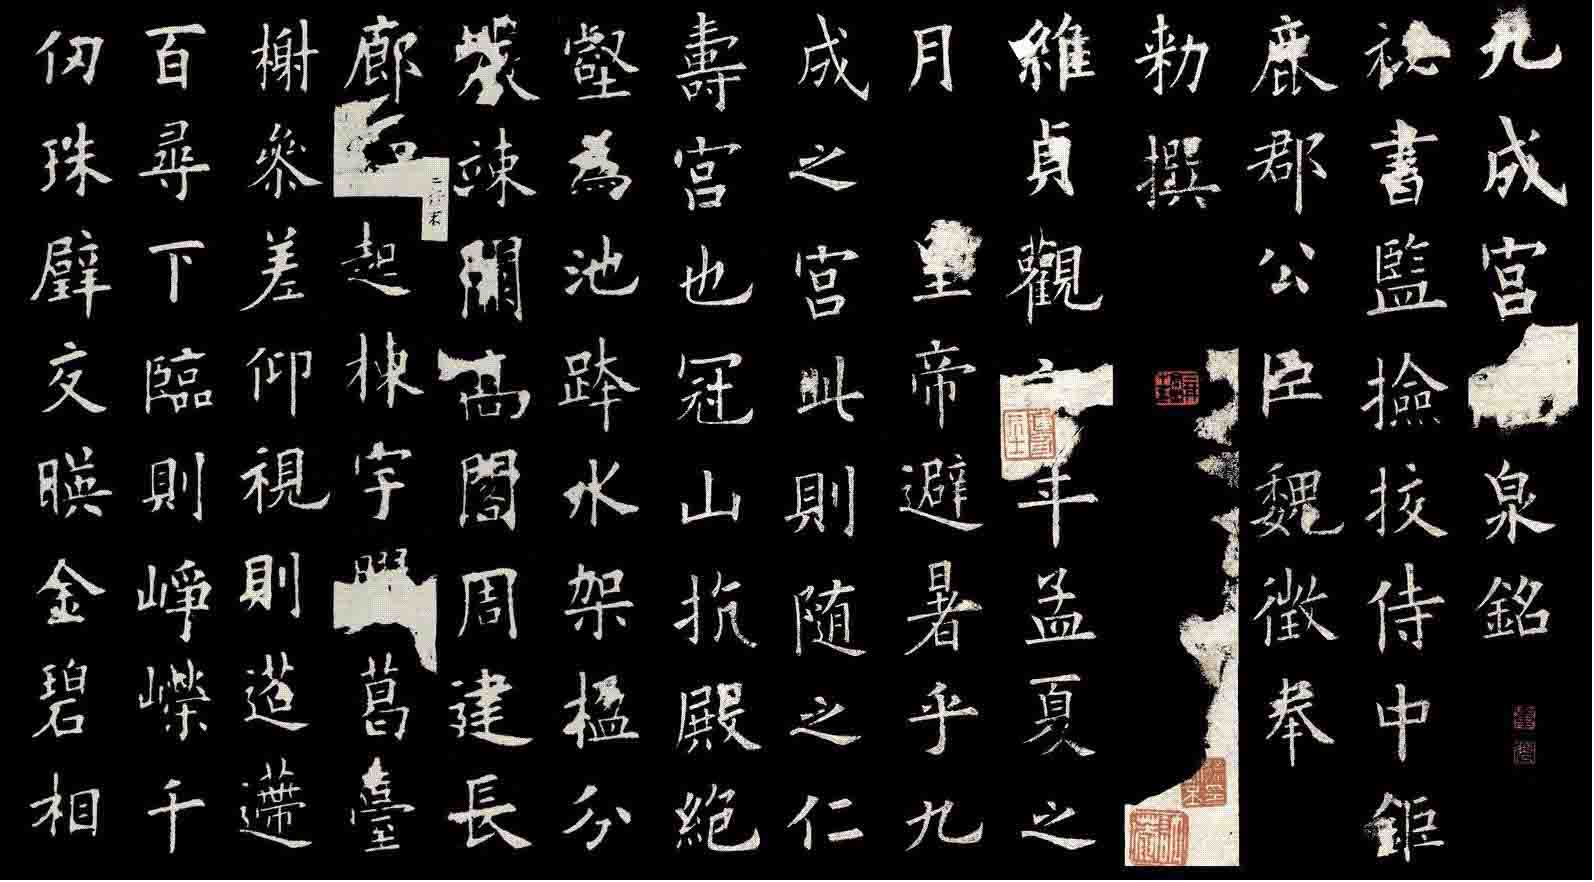 九成宮泉銘
祕書監撿挍侍中鉅
鹿郡公臣魏徵奉
勑撰
維貞觀六年孟夏之
月皇帝避暑乎九
成之宮此則随之仁
壽宮也冠山抗殿絕
壑為池跨水架楹分
巖竦闕高閣周建長
廊四起棟宇膠葛臺
榭參差仰視則迢遰
百尋下臨則崢嶸千
仞珠璧交暎金碧相